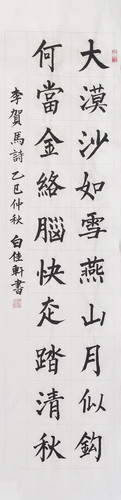 大漠沙如雪燕山月似鈎
何當金絡腦快走踏清秋
李賀馬詩乙巳仲秋白佳軒書